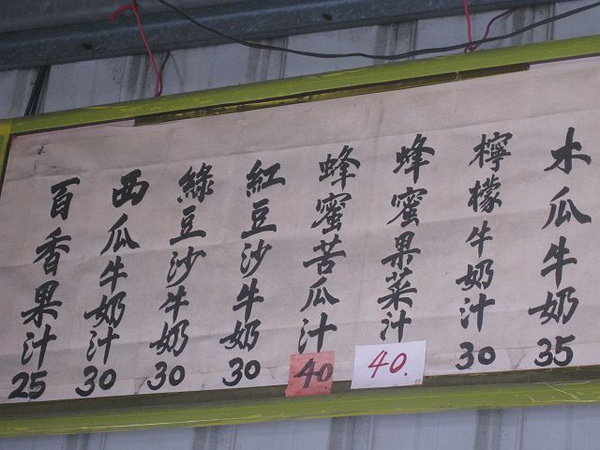 木瓜牛奶35
檸檬牛奶汁30
蜂蜜果菜汁40.
蜂蜜苦瓜汁40
紅豆沙牛奶30
綠豆沙牛奶30
西瓜牛奶汁30
百香果汁25